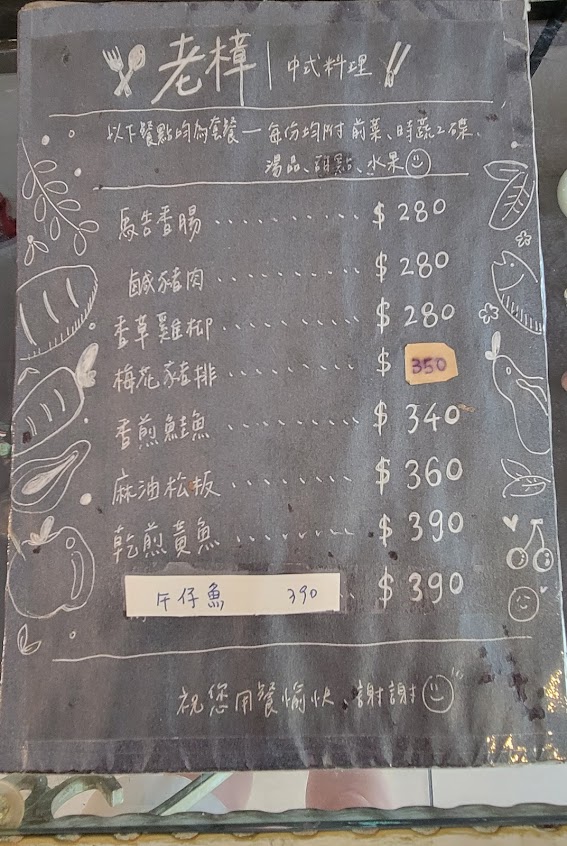 老樟 | 中式料理
以下餐點均為套餐－每份均附 前菜、時蔬2碟、
湯品、甜點、水果
馬告香腸 $280
鹹豬肉 $280
香草雞柳 $280
梅花豬排 $350
香煎鮭魚 $340
麻油松板 $360
乾煎黃魚 $390
午仔魚 390 $390
祝您用餐愉快、謝謝